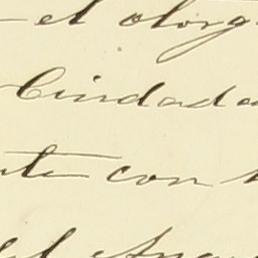 el otorg
Ciudad
nte con
del